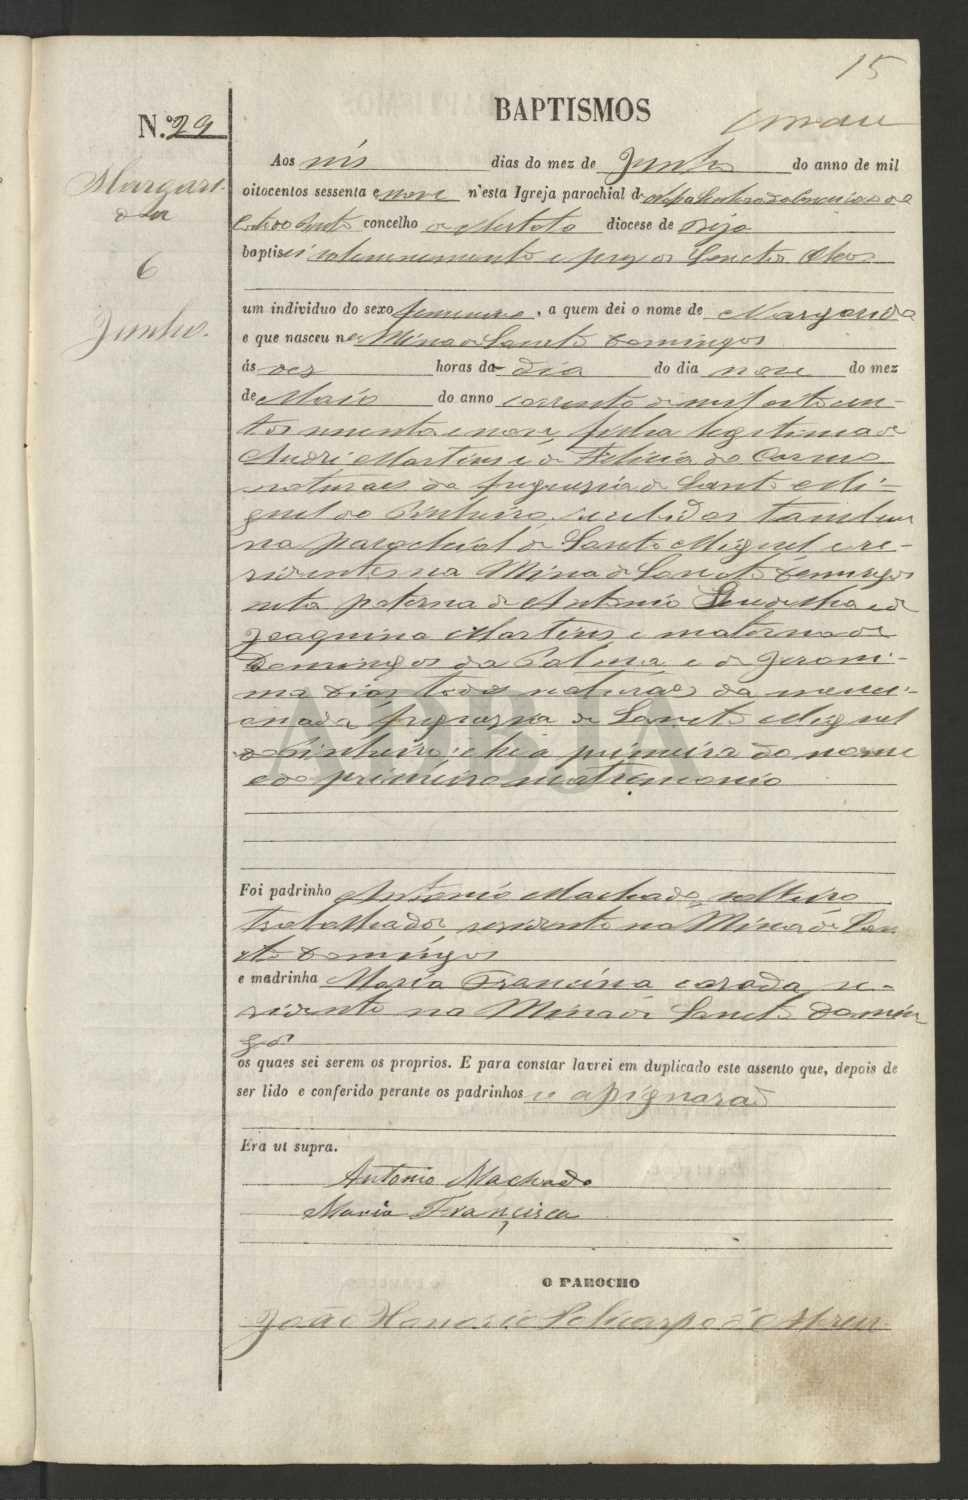 15
BAPTISMOS
N.º 29
Aos seis dias do mez de Junho do anno de mil
Margari-
da
oitocentos sessenta e nove n'esta Igreja parochial de
concelho de Mertola diocese de Beja
6
baptisei solemnemente e puz os Sanctos Oleos
um individuo do sexo femenino, a quem dei o nome de Margarida
Junho.
e que nasceu na Mina de Sancto Domingos
ás dez horas da dia do dia nove do mez
de Maio do anno corrente de mil oito cen-
tos secenta e nove, filha legitima de
André Martins e de Felicia do Carmo
naturaes da freguezia de Santo Mi-
guel do Pinheiro, recebidos tambem
na parochial de Santo Miguel e re-
sidentes na Mina de Sancto Domingos
neta paterna de Antonio e de
Joaquina Martins e materna de
Domingos da Palma e de Jeroni-
ma Dias todos naturaes da menci-
onada freguezia de Sancto Miguel
do Pinheiro; e he a primeira do nome
e do primeiro matrimonio
ADBJA
Foi padrinho Antonio Machado, solteiro
trabalhador residente na Mina de San-
cto Domingos
e madrinha Maria Francisca casada, re-
sidente na Mina de Sancto Domin-
gos
os quaes sei serem os proprios. E para constar lavrei em duplicado este assento que, depois de
ser lido e conferido perante os padrinhos se assignarão
Era ut supra.
Antonio Machado
Maria Francisca
O PAROCHO
João Honorio Policarpo d'Abreu